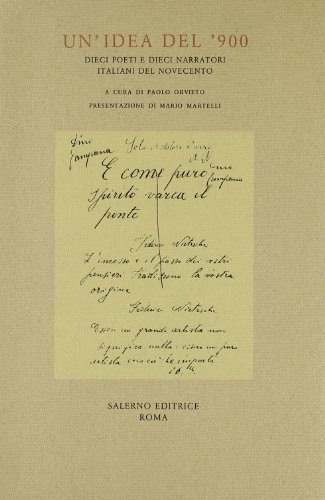 UN'IDEA DEL '900
DIECI POETI E DIECI NARRATORI
ITALIANI DEL NOVECENTO
A CURA DI PAOLO ORVIETO
PRESENTAZIONE DI MARIO MARTELLI
Dino
Campana
E come puro
Dino
Campana
spirito varca il
ponte
Federico Nietzsche
L'incesso e il passo dei vostri
pensieri tradiscono la vostra
origine
Federico Nietzsche
Esser un grande artista non
significa nulla: essere un puro
artista ecco ciò che importa
SALERNO EDITRICE
ROMA